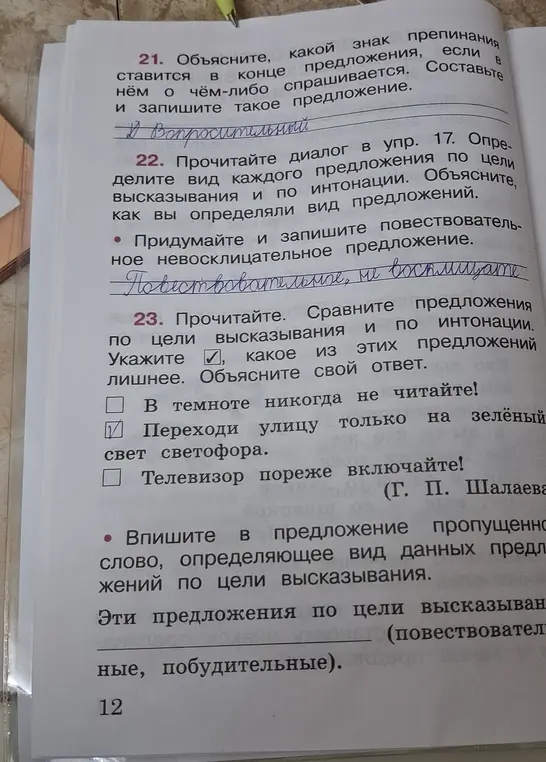 21. Объясните, какой знак препинания
ставится в конце предложения, если в
нём о чём-либо спрашивается. Составьте
и запишите такое предложение.
Вопросительный
22. Прочитайте диалог в упр. 17. Опре-
делите вид каждого предложения по цели
высказывания и по интонации. Объясните,
как вы определяли вид предложений.
• Придумайте и запишите повествователь-
ное невосклицательное предложение.
Повествовательное, не восклицате
23. Прочитайте. Сравните предложения
по цели высказывания и по интонации.
Укажите ✓, какое из этих предложений
лишнее. Объясните свой ответ.
В темноте никогда не читайте!
✓ Переходи улицу только на зелёный
свет светофора.
Телевизор пореже включайте!
(Г. П. Шалаева
• Впишите в предложение пропущенно
слово, определяющее вид данных предл
жений по цели высказывания.
Эти предложения по цели высказыван
(повествовател
ные, побудительные).
12